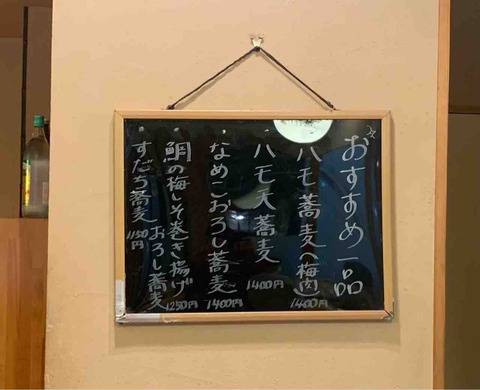 おすすめ一品
ハモ蕎麦(梅肉)
1400円
ハモ天蕎麦
1400円
なめこおろし蕎麦
1400円
鯛の梅しそ巻き揚げ
おろし蕎麦
1250円
すだち蕎麦
1150円